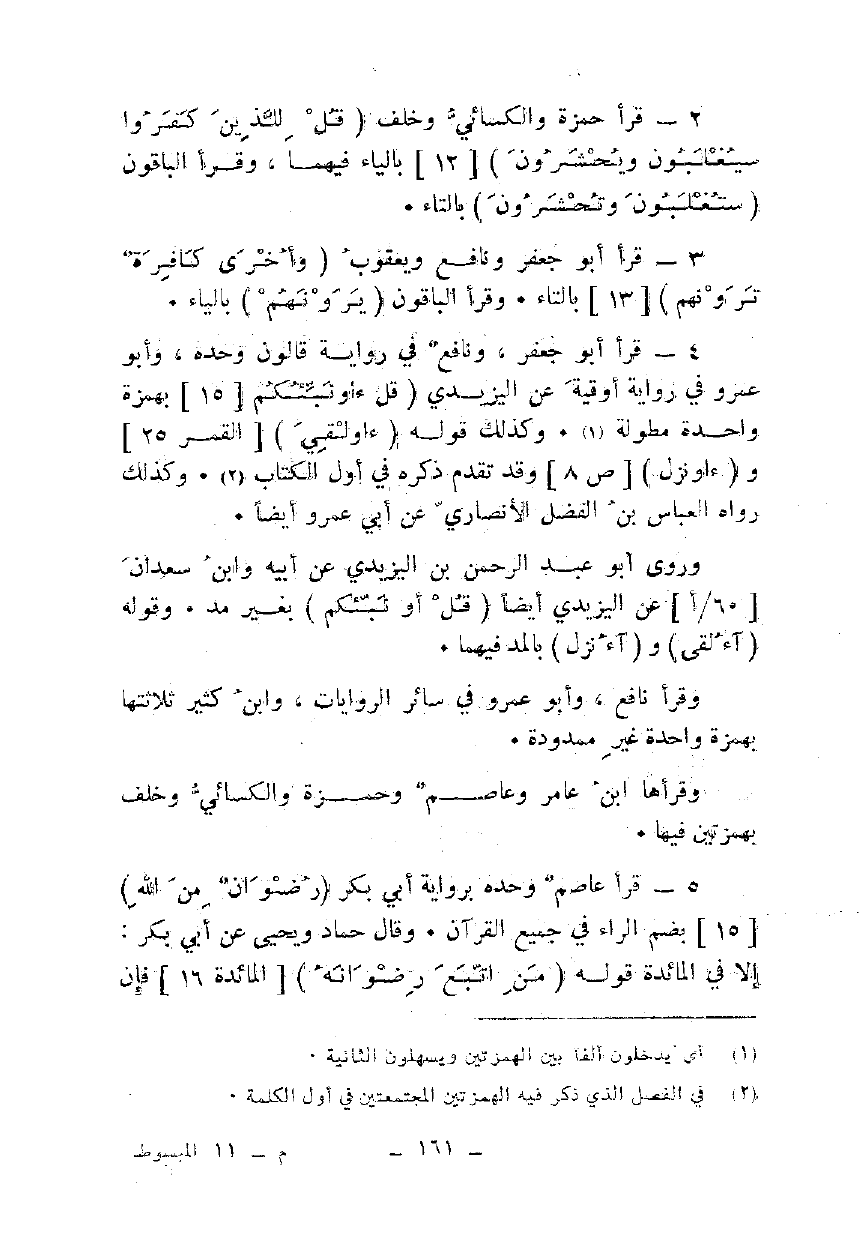 ٢ — قرأ حمزة والكسائيُّ وخلف ( قُلْ لِلَّذِينَ كَفَرُوا
سيُغْلَبُون ويُحْشَرُونَ ) [ ١٢ ] بالياء فيهما ، وقرأ الباقون
( ستُغْلَبُونَ وتُحْشَرُونَ ) بالتاء ٠
٣ — قرأ أبو جعفر ونافع ويعقوبُ ( وأُخْرَى كَافِرَةٌ
تَرَوْنهم ) [ ١٣ ] بالتاء ٠ وقرأ الباقون ( يَرَوْنَهُمْ ) بالياء ٠
٤ — قرأ أبو جعفر ، ونافعٌ في رواية قالون وحده ، وأبو
عمرو في رواية أوقيةَ عن اليزيدي ( قل ءاونَبِّئُكُم [ ١٥ ] بهمزة
واحدة مطولة (١) ٠ وكذلك قوله ( ءاولْقيَ ) [ القمر ٢٥ ]
و ( ءاونزل ) [ ص ٨ ] وقد تقدم ذكره في أول الكتاب (٢) ٠ وكذلك
رواه العباس بنُ الفضل الأنصاريّ عن أبي عمرو أيضاً ٠
وروى أبو عبد الرحمن بن اليزيدي عن أبيه وابنُ سعدانَ
[ ٦٠/أ ] عن اليزيدي أيضاً ( قُلْ أو نَبِّئكم ) بغير مد ٠ وقوله
(آءُلقى) و (آءُنزل ) بالمد فيهما ٠
وقرأ نافع ، وأبو عمرو في سائر الروايات ، وابنُ كثير ثلاثتها
بهمزة واحدة غيرِ ممدودة ٠
وقرأها ابنُ عامر وعاصمٌ وحمزة والكسائيُّ وخلف
بهمزتين فيها ٠
٥ — قرأ عاصمٌ وحده برواية أبي بكر (رُضْوَانٌ مِنَ اللهِ)
[ ١٥ ] بضم الراء في جميع القرآن ٠ وقال حماد ويحيى عن أبي بكر :
إلا في المائدة قوله ( مَنِ اتَّبَعَ رِضْوَانَهُ ) [ المائدة ١٦ ] فإن
(١) أي يدخلون ألفاً بين الهمزتين ويسهلون الثانية ٠
(٢) في الفصل الذي ذكر فيه الهمزتين المجتمعتين في أول الكلمة ٠
— ١٦١ —
م — ١١ المبسوط